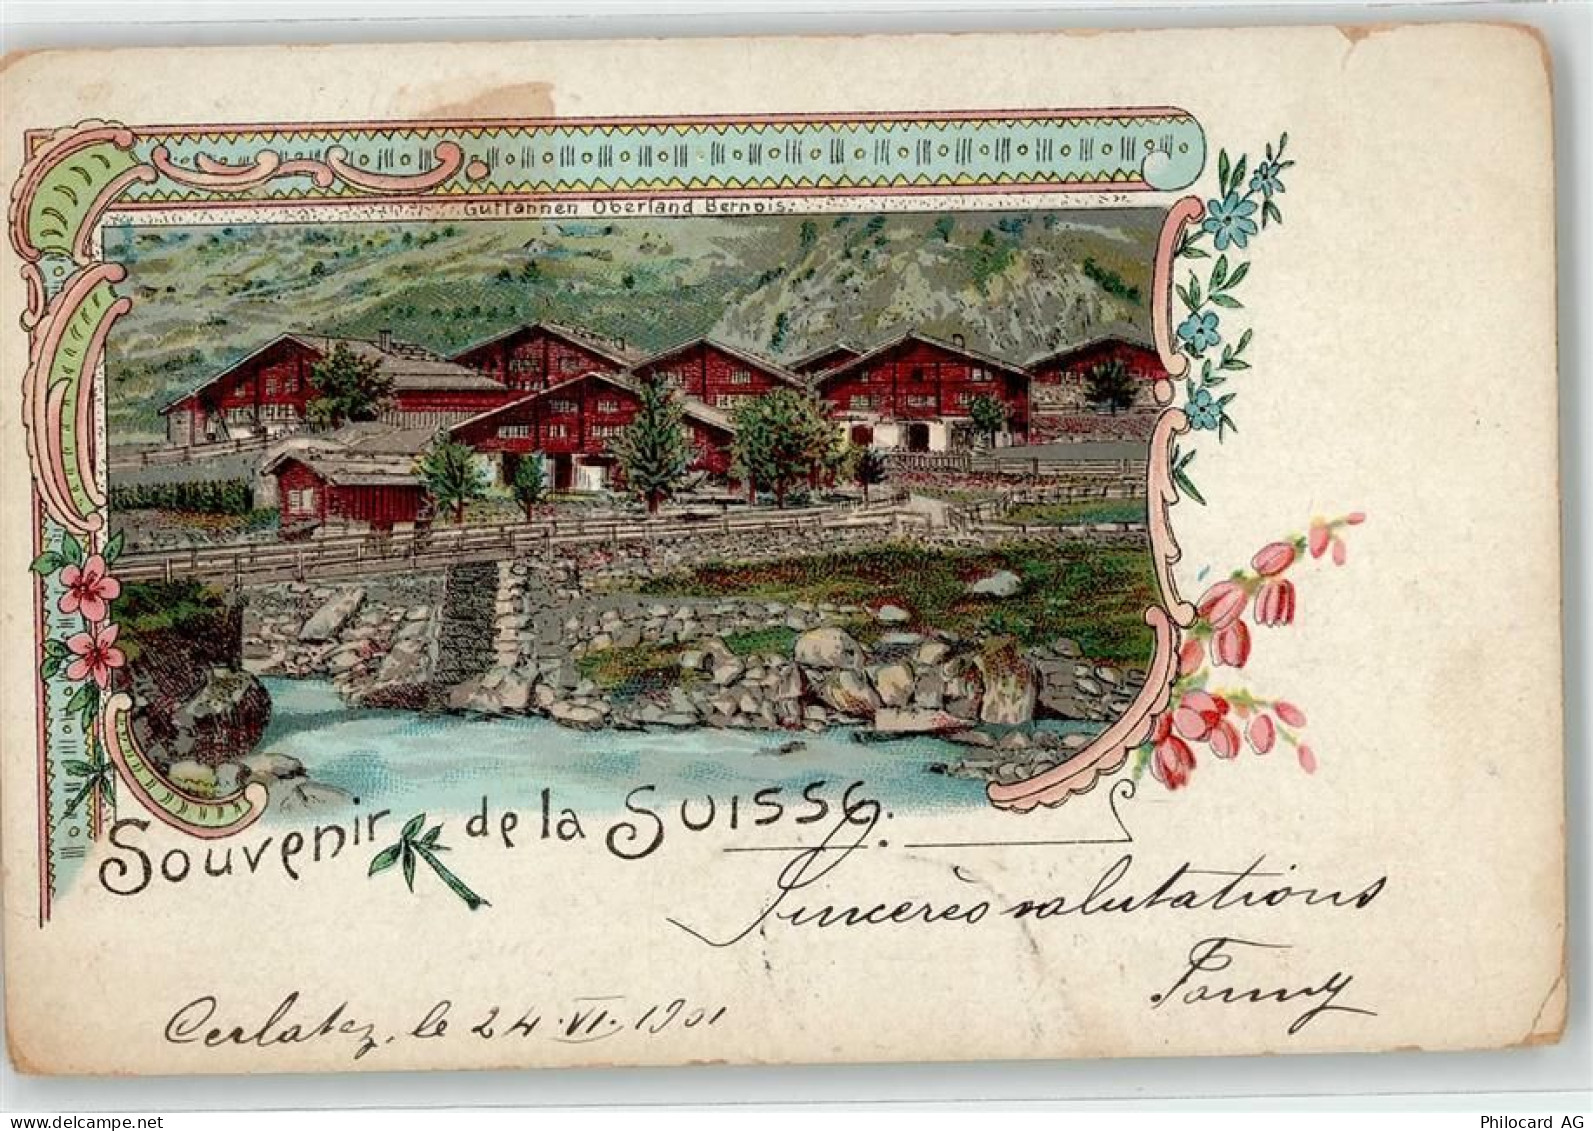 Guttannen Oberland Bernois.
Souvenir de la Suisse.
Sincères salutations
Fanny
Cerlatez, le 24.VI.1901
delcampe.net
Philocard AG